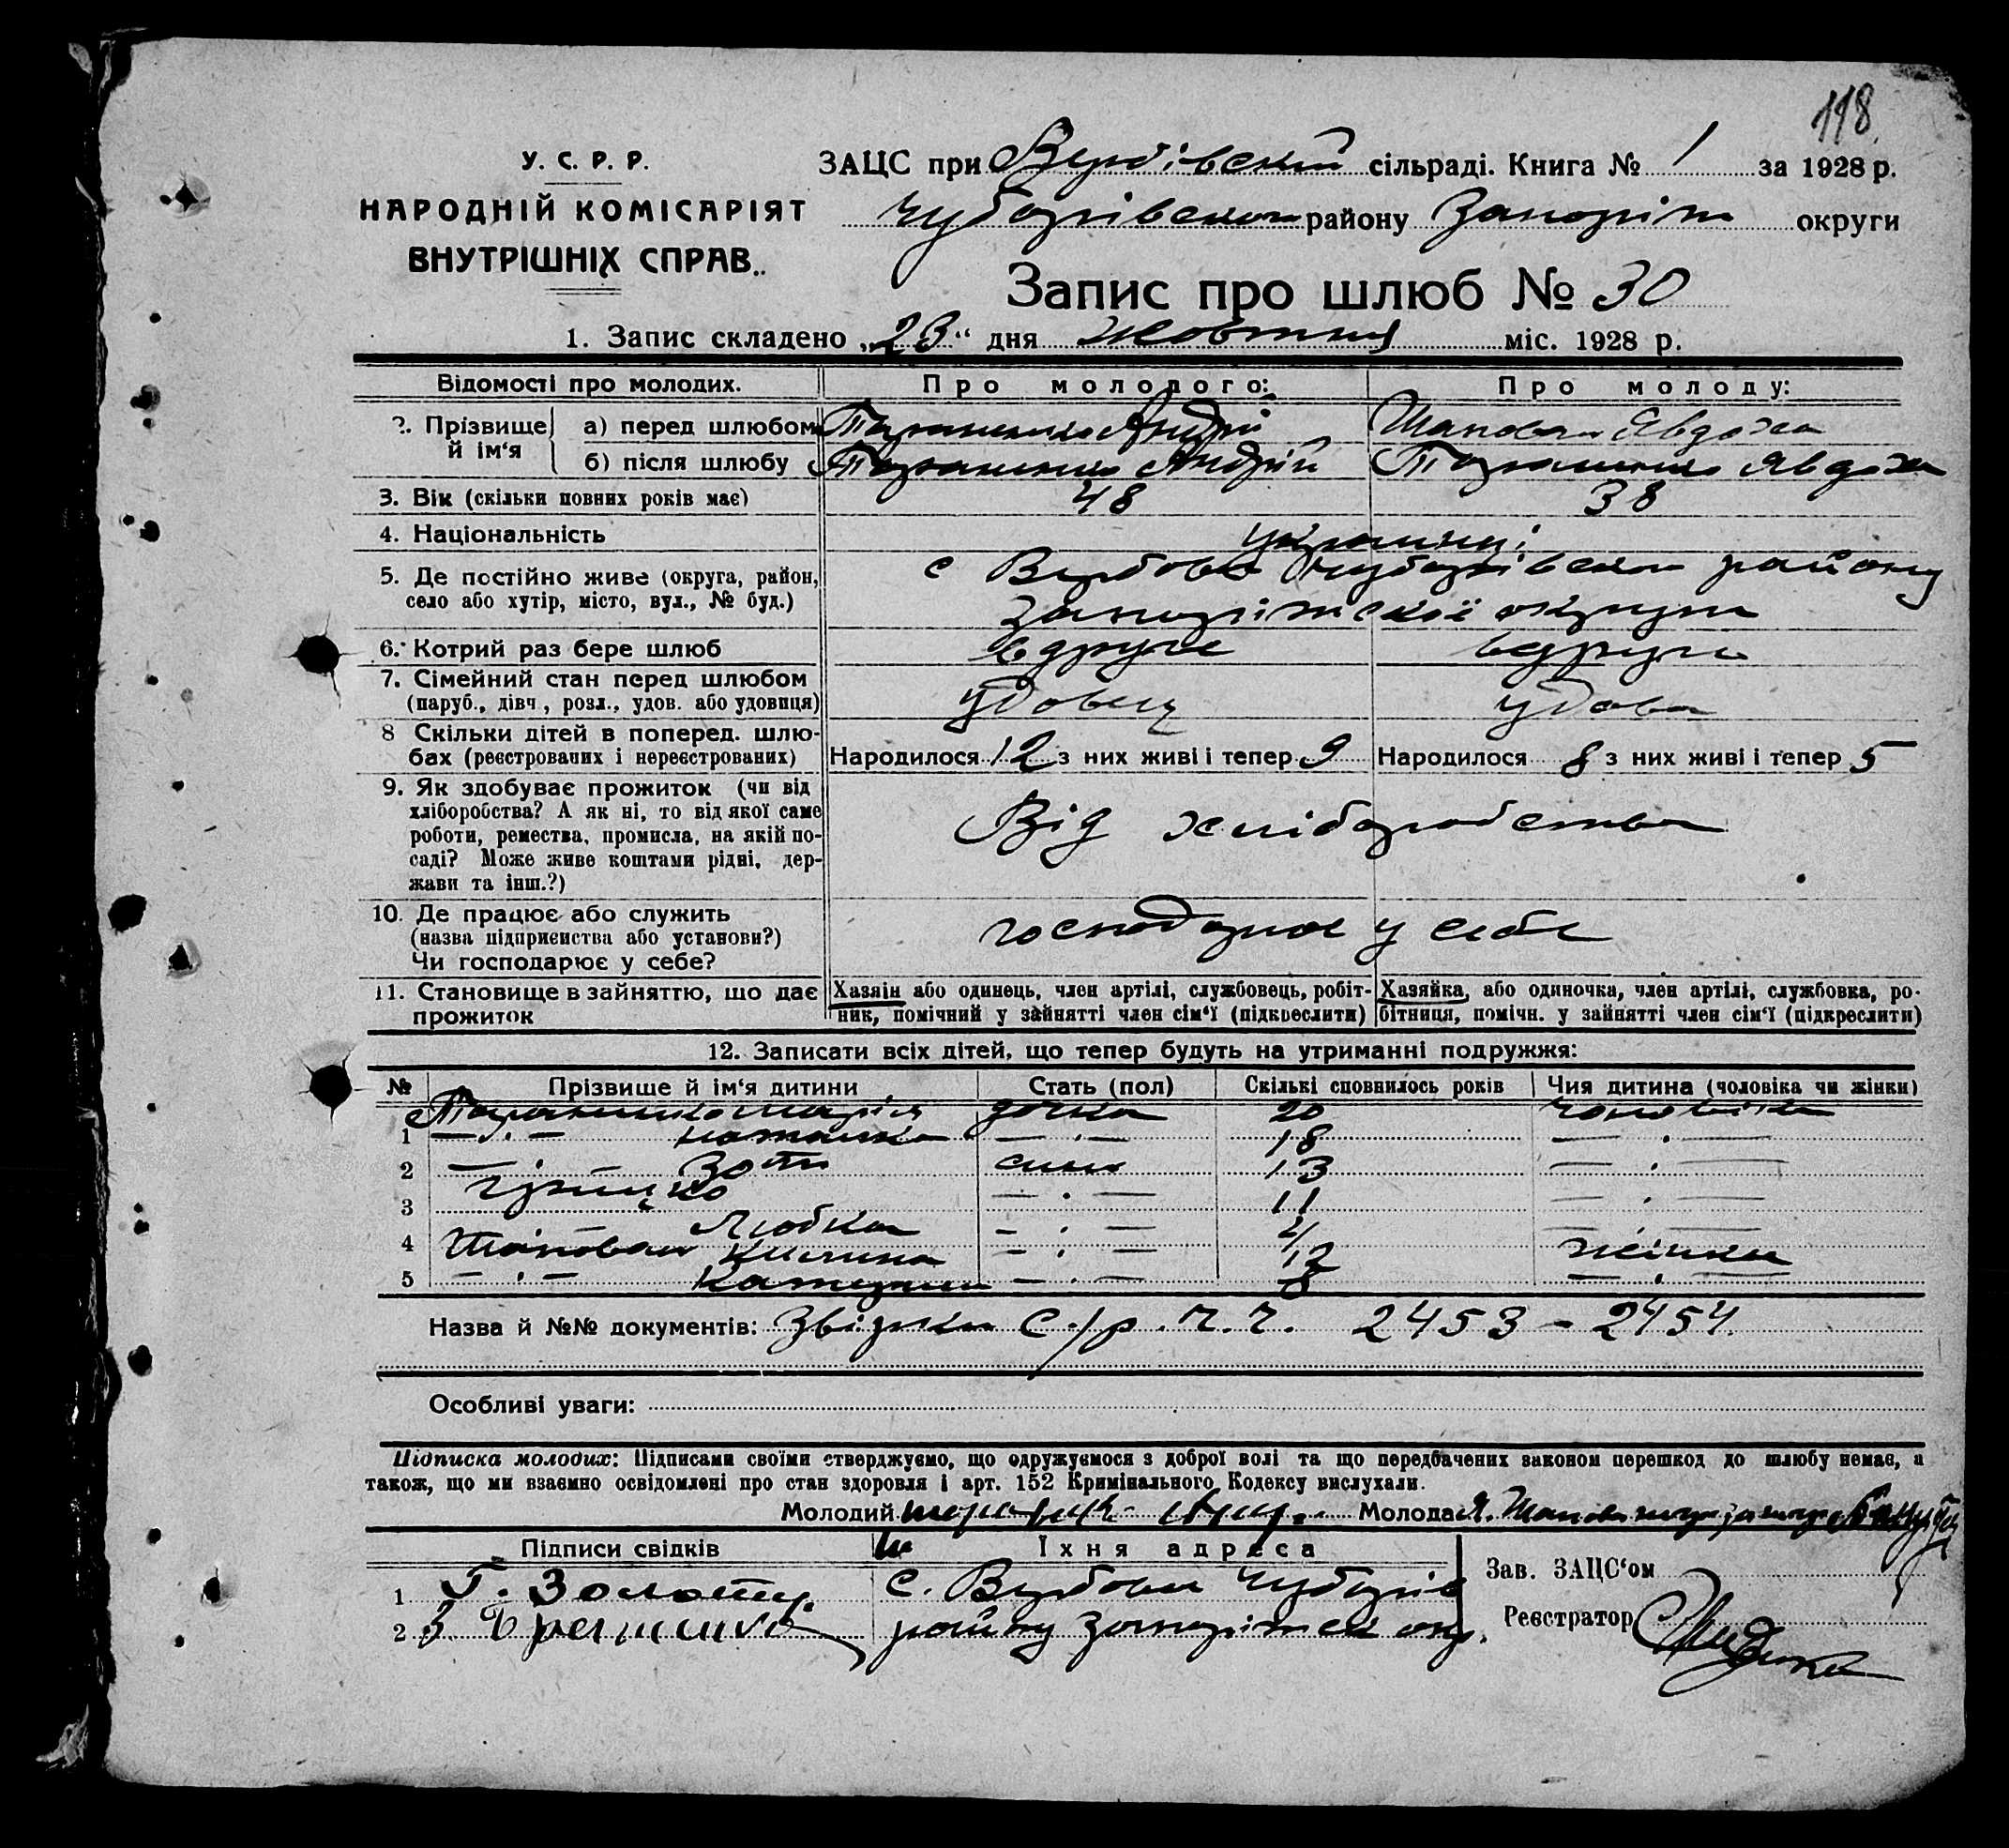 118
У. С. Р. Р.
НАРОДНІЙ КОМІСАРІЯТ
ВНУТРІШНІХ СПРАВ.
ЗАЦС при Вербівській сільраді. Книга № 1 за 1928 р.
Чубарівськ району Запоріж округи
Запис про шлюб № 30
1. Запис складено „23“ дня жовтня міс. 1928 р.
Відомості про молодих. Про молодого: Про молоду:
2. Прізвище й ім‘я
а) перед шлюбом Андрій Шаповал Явдоха
б) після шлюбу Андрій Явдоха
3. Вік (скільки повних років має) 48 38
4. Національність українці
5. Де постійно живе (округа, район, село або хутір, місто, вул., № буд.)
с Вербове Чубарівськ району
запоріжської округи
6. Котрий раз бере шлюб вдруге вдруге
7. Сімейний стан перед шлюбом
(паруб., дівч., розл., удов. або удовиця) удовець удова
8 Скільки дітей в поперед. шлю-
бах (реєстрованих і нереєстрованих) Народилося 12 з них живі і тепер 9 Народилося 8 з них живі і тепер 5
9. Як здобуває прожиток (чи від
хліборобства? А як ні, то від якої саме
роботи, ремества, промисла, на якій по-
саді? Може живе коштами рідні, дер-
жави та інш.?)
Від хліборобства
10. Де працює або служить
(назва підприємства або установи?)
Чи господарює у себе?
господарює у себе
11. Становище в зайняттю, що дає
прожиток
Хазяїн або одинець, член артілі, службовець, робіт-
ник, помічний у зайнятті член сім‘ї (підкреслити)
Хазяйка, або одиночка, член артілі, службовка, ро-
бітниця, помічн. у зайнятті член сім‘ї (підкреслити)
12. Записати всіх дітей, що тепер будуть на утриманні подружжя:
№ Прізвище й ім‘я дитини Стать (пол) Скількі сповнилось років Чия дитина (чоловіка чи жінки)
Марія дочка 20 чоловіка
1 — " — Наталка — " — 18 — " —
2 — " — Зот син 13 — " —
3 Грицько — " — 11 — " —
4 — Любка — " — 4 — " —
Шаповал Килина — " — 12 жінки
5 — " — Катерина — " — 8 — " —
Назва й №№ документів: Звірка с/р. ч. ч. 2453 – 2454
Особливі уваги:
Підписка молодих: Підписами своїми стверджуємо, що одружуємося з доброї волі та що передбачених законом перешкод до шлюбу немає, а
також, що ми взаємно освідомлені про стан здоровля і арт. 152 Кримінального Кодексу вислухали.
Молодий Молода Я. Шаповал
Підписи свідків Їхня адреса
1 Г. Золот с. Вербове Чубарів
2 З району запоріжськ окр.
Зав. ЗАЦС‘ом
Реєстратор